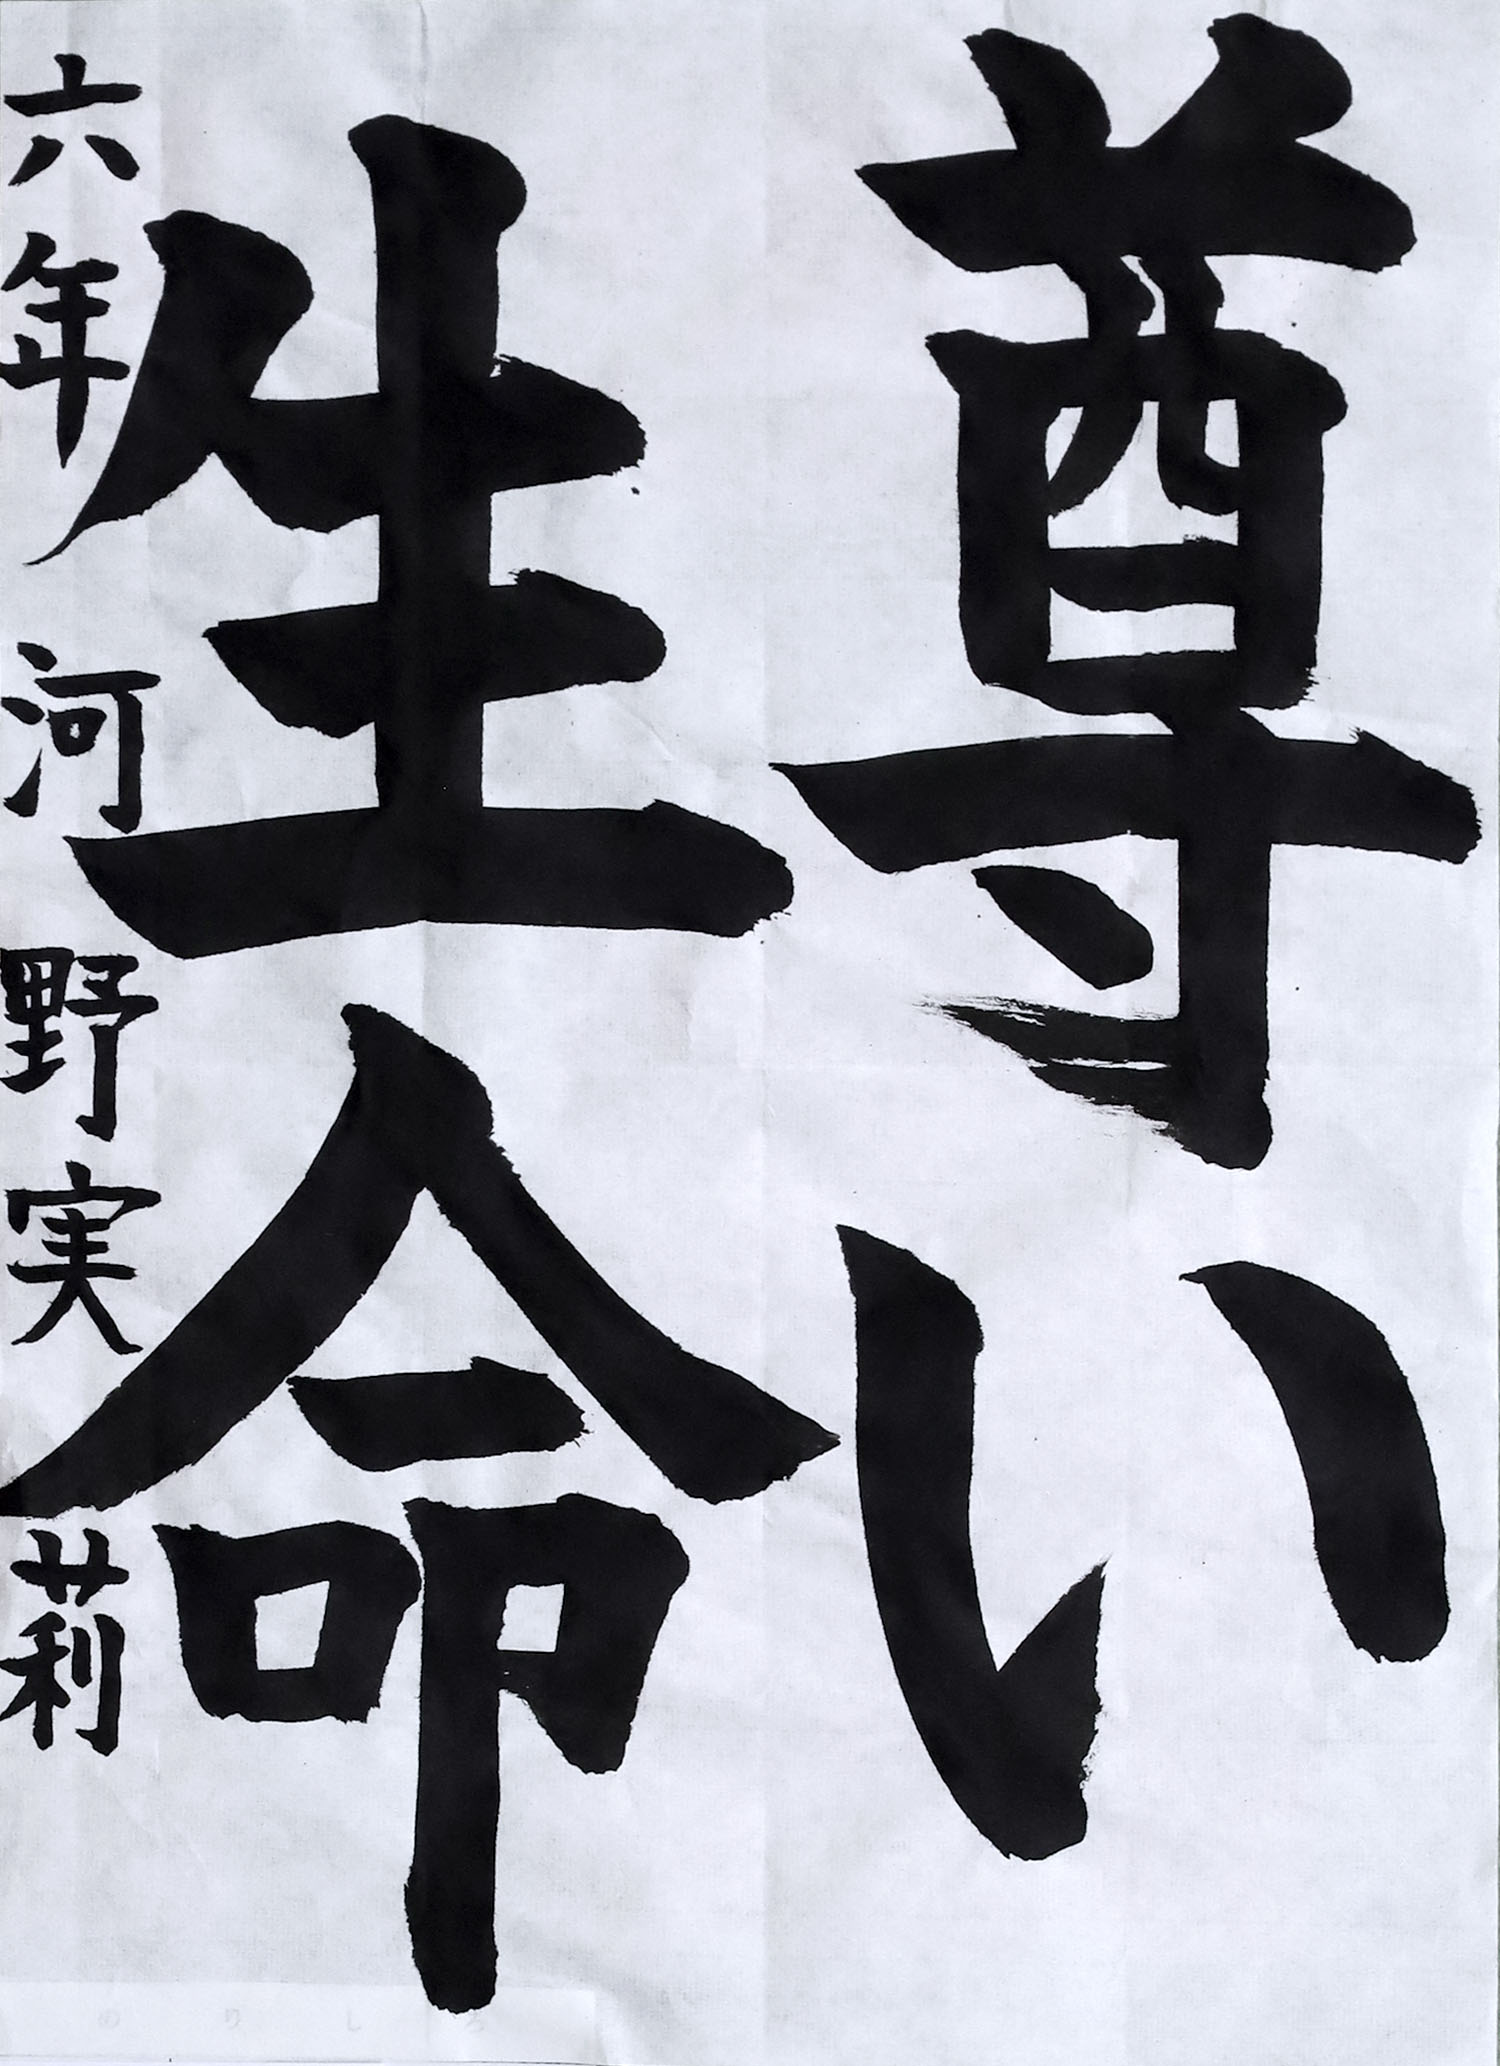 尊い
生命
六年 河野実莉
のりしろ